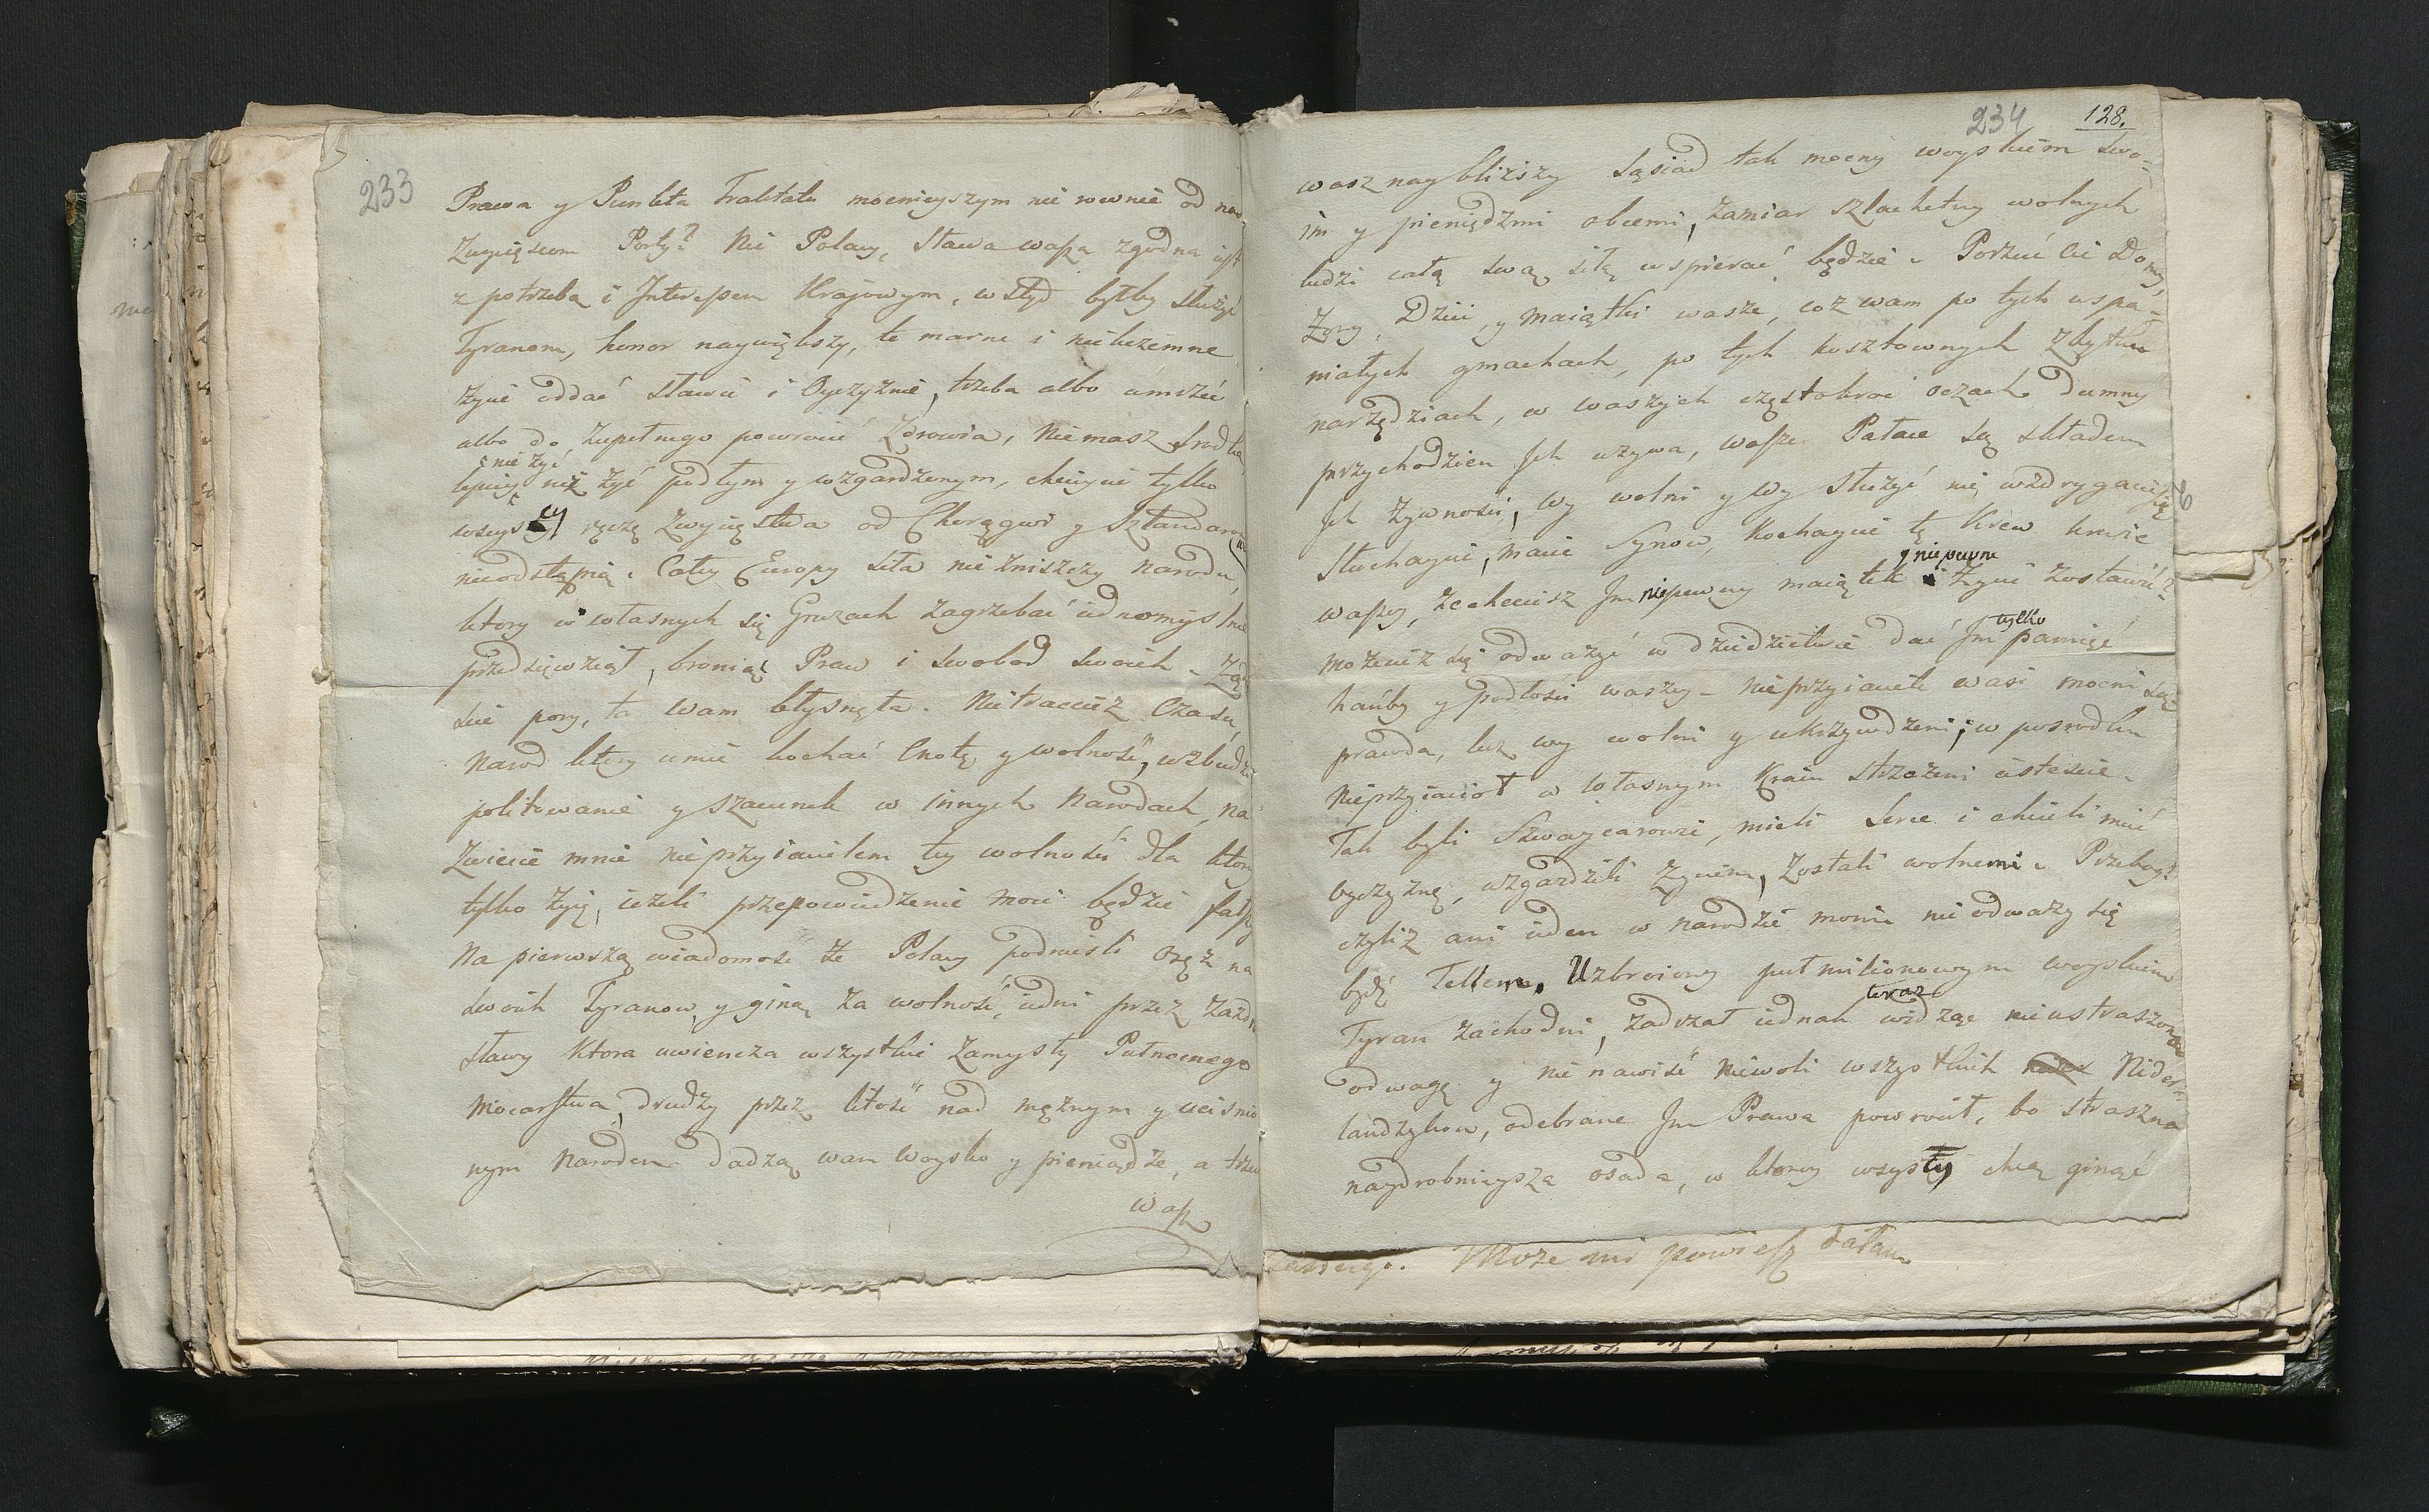 233
Prawa y Punkta Traktatu mocnieyszym nie rownie od nas
Zwycięscom Porty? Nie Polacy, Sława wasza zgodna iest
z potrzebą i Interessem Krajowym, wstyd byłby służyć
Tyranom, honor naywiększy, te marne i niebezemne
życie oddać sławie i Oyczyznie, trzeba albo umrzeć
albo do zupełnego powrocić Zdrowia, Nie masz srodka,
nie żyć
lepiey niż żyć podłym y wzgardzonym, chcieycie tylko
wszyscy ręczę Zwycięstwa od Chorągwi y Sztandarow
nieodstąpią. Całey Europy siła nie zniszczy Narodu,
ktory w własnych się Gruzach zagrzebać iednomyslnie
przedsięwziął, broniąc Praw i swobod swoich.
sie pory, ta wam błysnęła. Nietraccież Czasu,
Narod ktory umie kochać Cnotę y wolność, wzbudzi
politowanie y szacunek w innych Narodach, na
zwiecie mnie nieprzyiacielem tey wolności dla ktorey
tylko żyię, ieżeli przepowiedzenie moie będzie fałsz
Na pierwszą wiadomość że Polacy podniesli oręż na
swoich Tyranow, y giną za wolność, iedni przez zazdr
sławy Ktora uwiencza wszystkie zamysły Pułnocnego
Mocarstwa, drudzy przez litość nad mężnym y ucisnio
nym Narodem dadzą wam woysko y pieniądze, a trzeci
wasz
234 128.
wasz naybliższy Sąsiad tak mocny woyskiem swo-
im y pieniędzmi obcemi, zamiar szlachetny wolnych
ludzi całą swą siłą wspierać będzie. Porzuć cie Domy,
Żony, Dzieci, y maiątki wasze, coż wam po tych wspa-
niałych gmachach, po tych kosztownych zbytku
narzędziach, w waszych częstokroć oczach dumny
przychodzien Jch używa, wasze Pałace są składem
Jch żywności, wy wolni y wy służyć nie wzdrygacie się
Słuchaycie, macie Synow, kochaycie tę Krew krwie
y niepewne
waszey, zechcecisz Jm niepewny maiątek i życie zostawić?
tylko
możecież się odważyć w dziedzictwie dać Jm pamięć
hańby y podłości waszey - nieprzyiaciele wasi mocni są
prawda, lecz wy wolni y ukrzywdzeni; w posrodku
nieprzyiacioł w własnym Kraiu strzeżeni iestescie.
Tak byli Szwaycarowie, mieli serce i chcieli mieć
oyczyznę, wzgardzili życiem, zostali wolnemi. Przebog!
czyliż ani ieden w narodzie moim nie odważy się
bydź Tellem. Uzbroiony puł milionowym woyskiem
teraz
Tyran zachodni, zadrzał iednak widząc nieustraszoną
odwagę y nienawiść niewoli wszystkich Nider-
landzykow, odebrane Jm Prawa powrocił, bo straszna
naydrobnieysza osada, w ktorey wszyscy chcą ginąć
Moze mi powiesz dałam